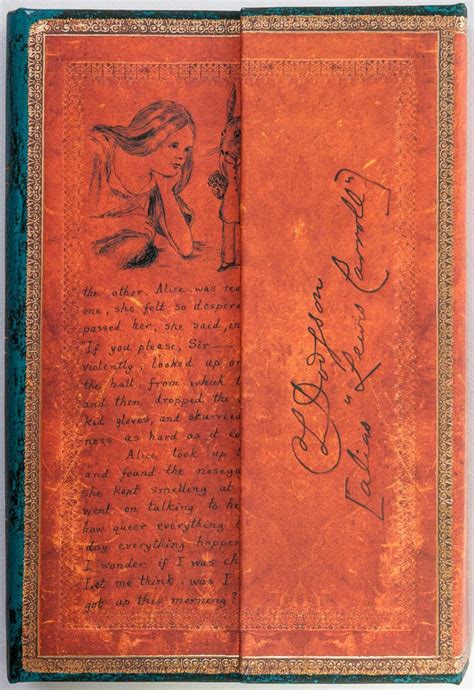 the other. Alice was rea
one, she felt so despera
passed her, she said, in
"If you please, Sir—
violently, looked up, on
the hall, from which t
and then dropped the
kid gloves, and skurrie
ness as hard as it co
Alice took up t
and found the nosega
she kept smelling at
went on talking to he
how queer everything
day everything happen
I wonder if I was ch
Let me think: was I
got up this morning?
CL Dodgson
[alias "Lewis Carroll"]